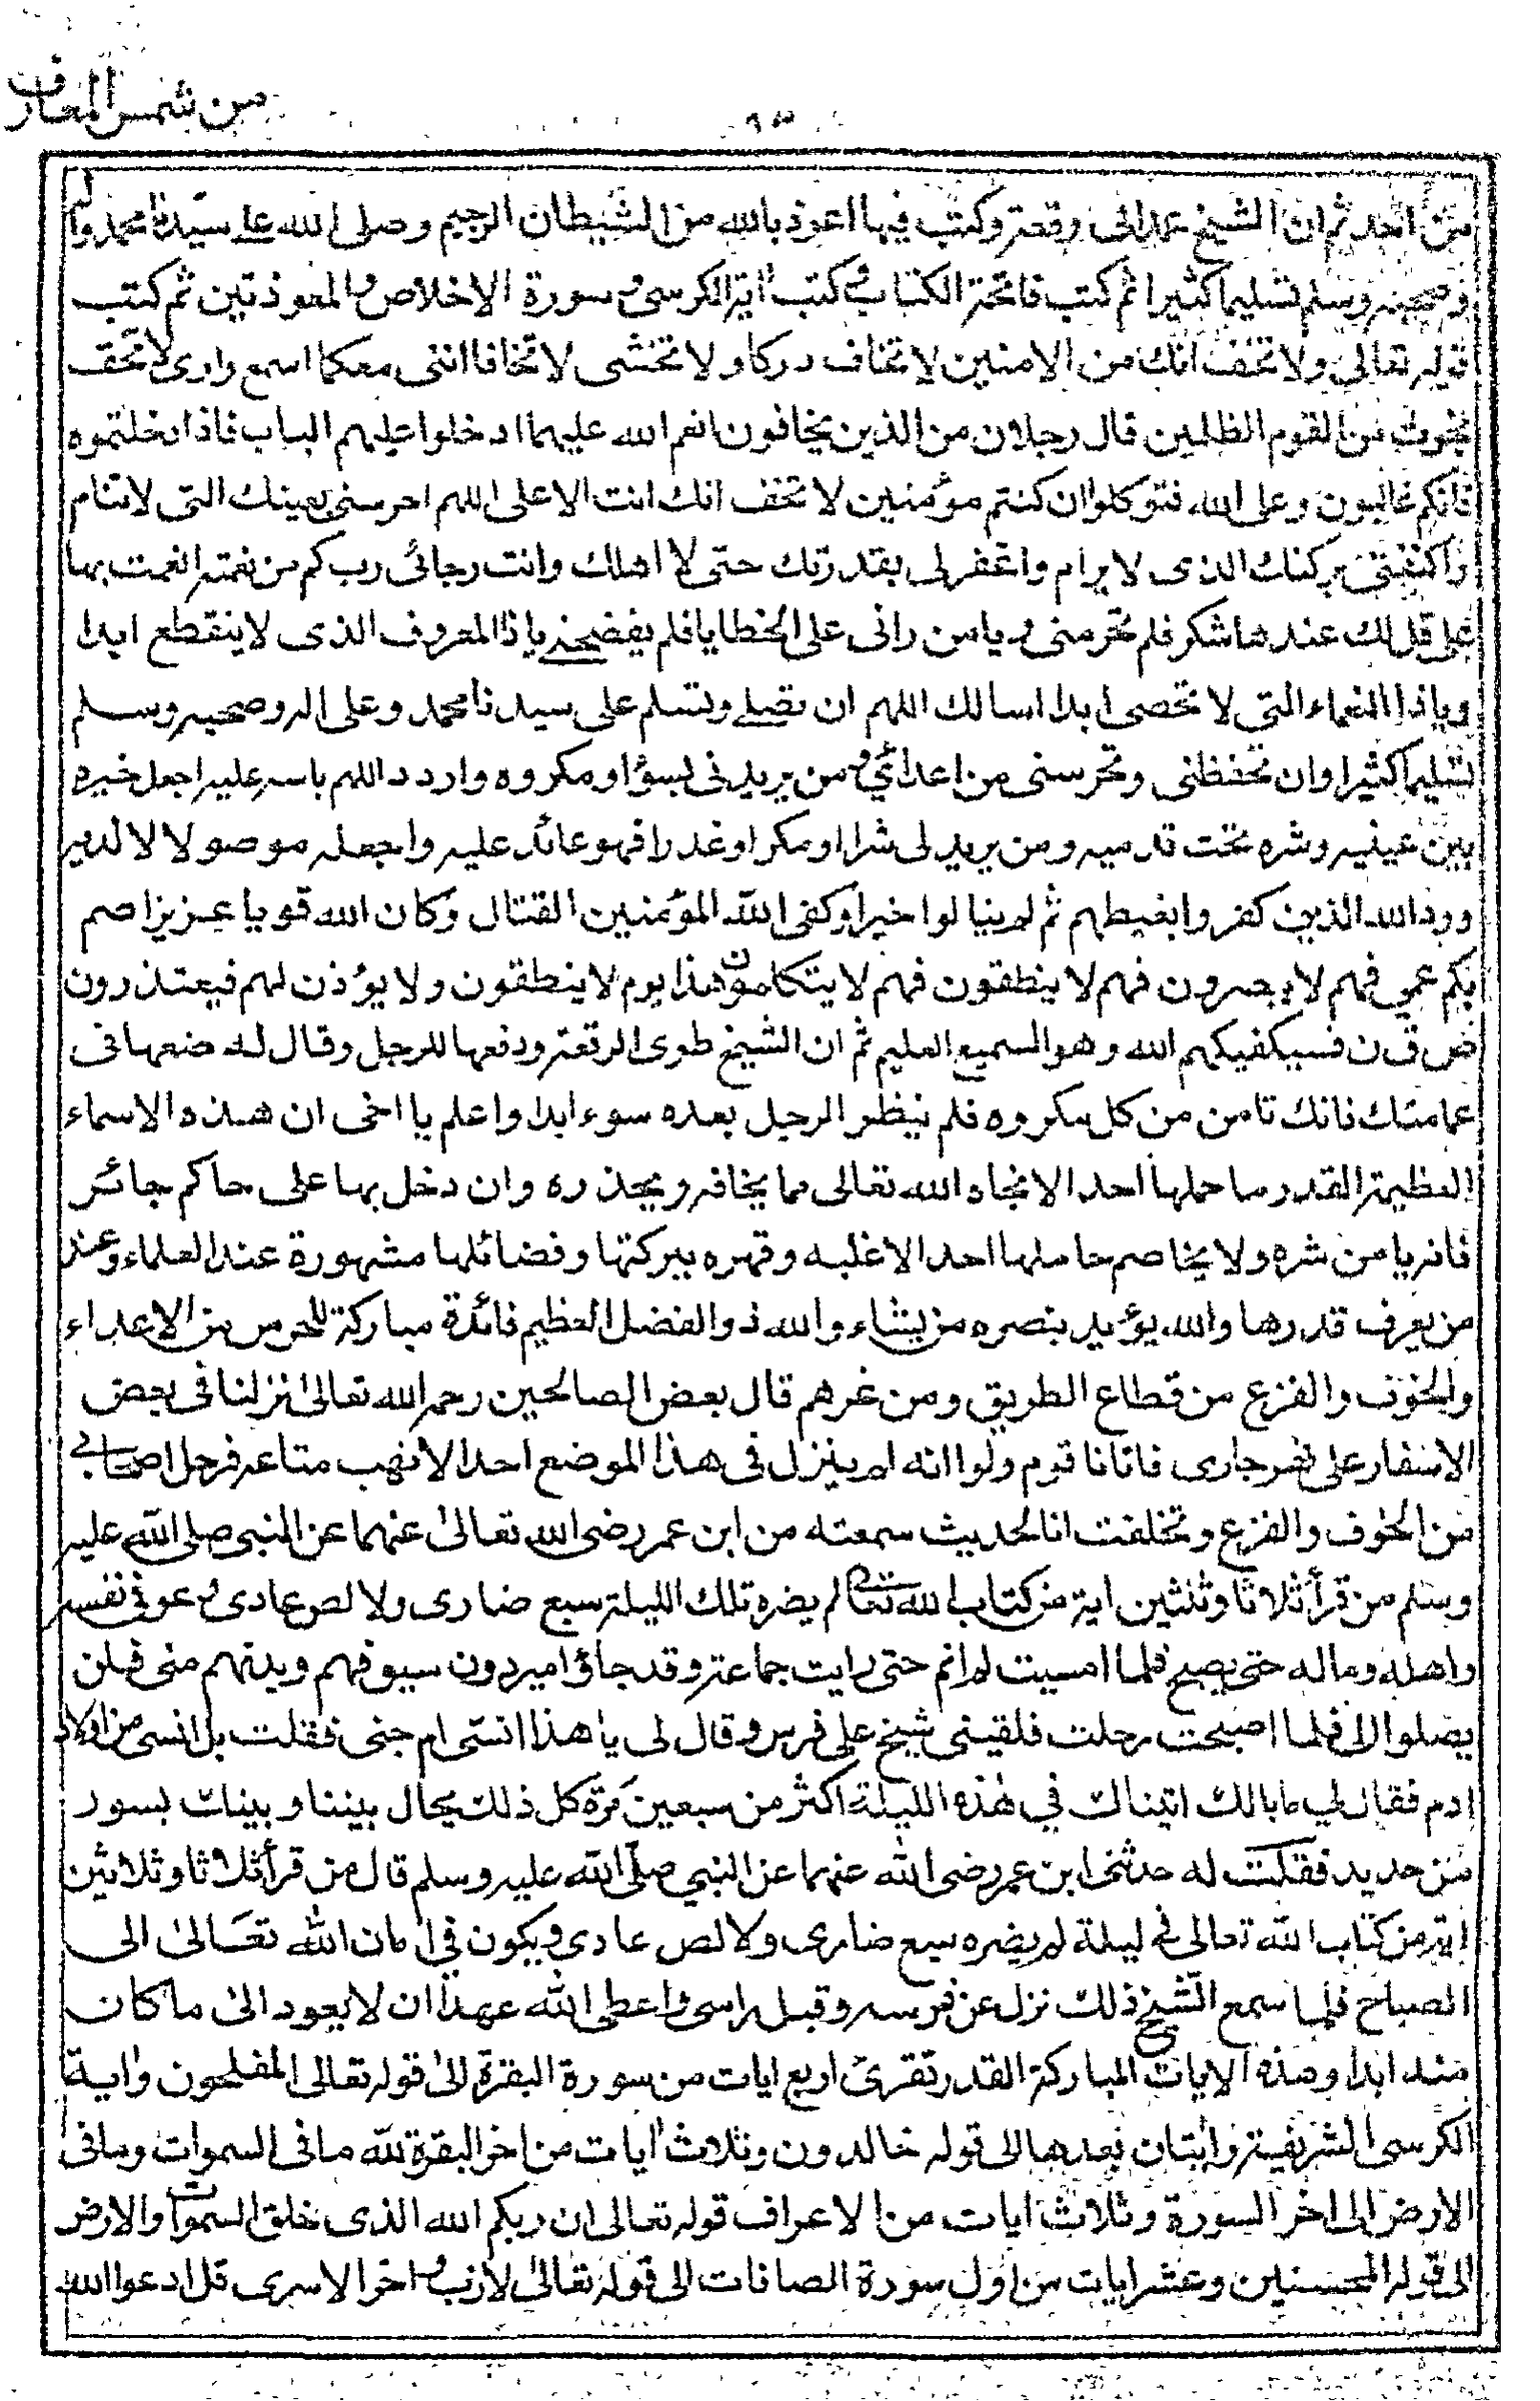 من شمس المعارف
من احد ثم ان الشيخ عمد الى رقعة وكتب فيها اعوذ بالله من الشيطان الرجيم وصلى الله على سيدنا محمد واله
وصحبه وسلم تسليما كثيرا ثم كتب فاتحة الكتاب وكتب اية الكرسى و سورة الاخلاص والمعوذتين ثم كتب
قوله تعالى ولا تخف انك من الامنين لا تخاف دركا ولا تخشى لا تخافا اننى معكما اسمع وارى لا تخف
نجوت من القوم الظلمين قال رجلان من الذين يخافون انعم الله عليهما ادخلوا عليهم الباب فاذا دخلتموه
فانكم غالبون وعلى الله فتوكلوا ان كنتم مؤمنين لا تخف انك انت الاعلى اللهم احرسنى بعينك التى لا تنام
واكنفنى بركنك الذى لا يرام واغفر لى بقدرتك حتى لا اهلك وانت رجائى رب كم من نعمة انعمت بها
على قل لك عندها شكر فلم تحرمنى و يا من رانى على الخطايا فلم يفضحنى يا ذا المعروف الذى لا ينقطع ابدا
ويا ذا النعماء التى لا تحصى ابدا اسالك اللهم ان تصلى وتسلم على سيدنا محمد وعلى اله وصحبه وسلم
تسليما كثيرا وان تحفظنى وتحرسنى من اعدائى و من يريدنى بسؤ او مكروه واردد اللهم باسه عليه اجعل خيره
بين عينيه وشره تحت قدميه ومن يريد لى شرا او مكرا او غدرا فهو عائد عليه واجعله موصولا لا لديه
ورد الله الذين كفروا بغيظهم ثم لم ينالوا خيرا وكفى الله المؤمنين القتال وكان الله قويا عزيزا صم
بكم عمي فهم لا يبصرون فهم لا ينطقون فهم لا يتكلمون هذا يوم لا ينطقون ولا يؤذن لهم فيعتذرون
ص ق ن فسيكفيكهم الله وهو السميع العليم ثم ان الشيخ طوى الرقعة ودفعها للرجل وقال له ضعها فى
عمامتك فانك تامن من كل مكروه فلم ينظر الرجل بعده سوء ابدا واعلم يا اخى ان هذه الاسماء
العظيمة القدر ما حملها احد الا نجاه الله تعالى مما يخافه ويحذره وان دخل بها على حاكم جائر
فانه يامن شره ولا يخاصم حاملها احد الا غلبه وقهره ببركتها وفضائلها مشهورة عند العلماء وعند
من يعرف قدرها والله يؤيد بنصره من يشاء والله ذو الفضل العظيم فائدة مباركة للحرس من الاعداء
والخوف والفزع من قطاع الطريق ومن غرهم قال بعض الصالحين رحمه الله تعالى نزلنا فى بعض
الاسفار على نهر جارى فاتانا قوم ولوا انه لم ينزل فى هذا الموضع احد الا نهب متاعه فرحل اصحابى
من الخوف والفزع وتخلفت انا لحديث سمعته من ابن عمر رضى الله تعالى عنهما عن النبى صلى الله عليه
وسلم من قرأ ثلاثا وثلثين اية من كتاب الله تعالى لم يضره تلك الليلة سبع ضارى ولا لص عادى و عوفى نفسه
واهله وماله حتى يصبح فلما امسيت لم انم حتى رايت جماعة وقد جاؤا ميردون سيوفهم ويدنهم منى فلن
يصلوا الى فلما اصبحت رحلت فلقينى شيخ على فرس وقال لى يا هذا انسى ام جنى فقلت بل انسى من اولاد
ادم فقال لي ما بالك اتيناك في هذه الليلة اكثر من سبعين مرة كل ذلك يحال بيننا وبينك بسور
من حديد فقلت له حدثنى ابن عمر رضى الله عنهما عن النبي صلى الله عليه وسلم قال من قرأ ثلاثا وثلاثين
اية من كتاب الله تعالى فى ليلة لم يضره سبع ضارى ولا لص عادى ويكون في امان الله تعالى الى
الصباح فلما سمع الشيخ ذلك نزل عن فرسه وقبل راسى واعطى الله عهدا ان لا يعود الى ما كان
منه ابدا وهذه الايات المباركة القدر تقرئ اربع ايات من سورة البقرة الى قوله تعالى المفلحون واية
الكرسى الشريفة وايتان بعدها الى قوله خالدون وثلاث ايات من اخر البقرة لله ما فى السموات وما فى
الارض الى اخر السورة وثلاث ايات من الاعراف قوله تعالى ان ربكم الله الذى خلق السموات والارض
الى قوله المحسنين وعشر ايات من اول سورة الصافات الى قوله تعالى لازب و اخر الاسرى قل ادعوا الله